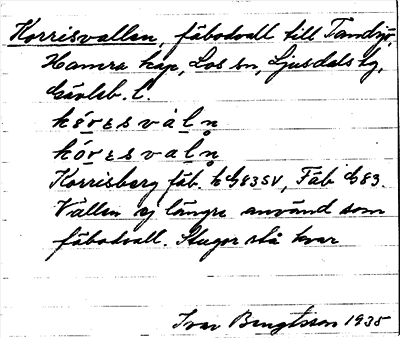 Korrisvallen, fäbodvall till Tandsjö,
Hamra kap, Los sn, Ljusdals tg,
Gävleb. l.
kôrεsvàln
kórεsvaln
Korrisberg fäb. k G83SV, Fäb G83.
Vallen ej längre använd som
fäbodvall. Stugor stå kvar
Ivar Bengtsson 1935